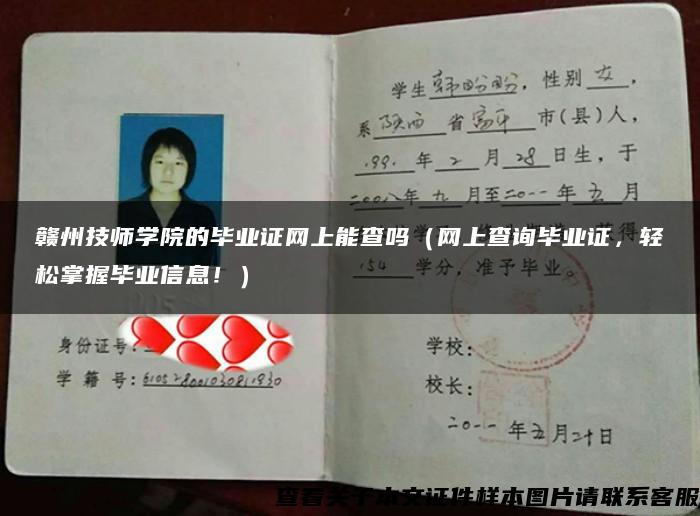 学生韩盼盼,性别女,
系陕西省富平市(县)人,
1991年2月28日生,于
二00八年九月至二0一一年五月
赣州技师学院的毕业证网上能查吗（网上查询毕业证，轻
松掌握毕业信息！）
154学分,准予毕业。
身份证号:
学籍号:
学校:
校长:
二0一一年五月二十日
查看关于本文证件样本图片请联系客服